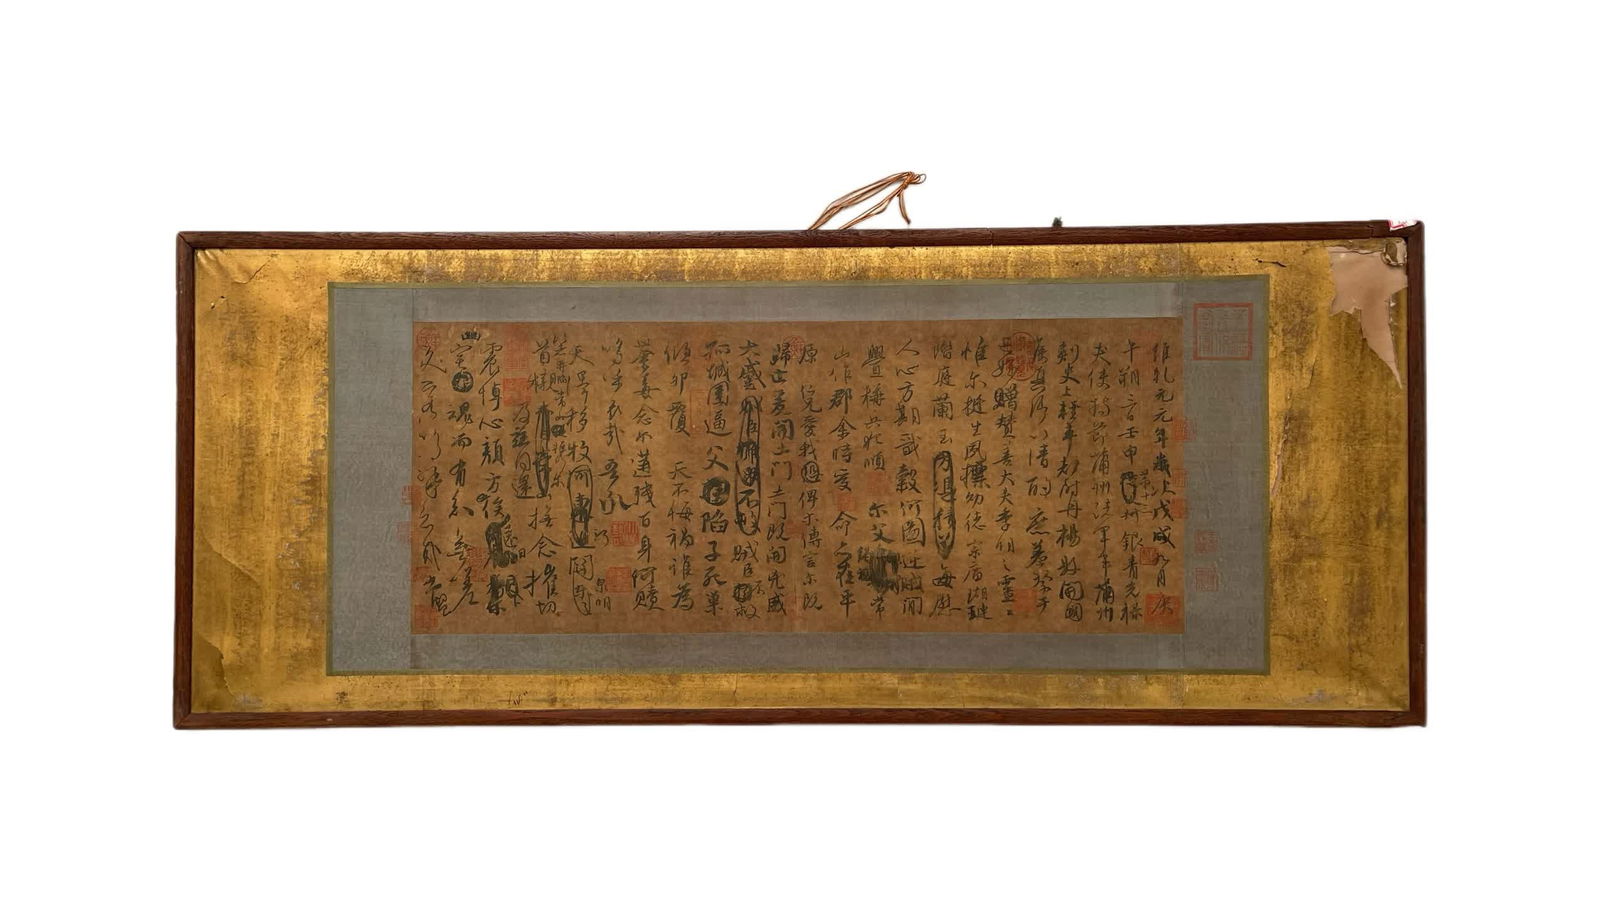 維乾元元年歲次戊戌九月庚
午朔三日壬申第十三叔銀青光祿
夫使持節蒲州諸軍事蒲州
刺史上輕車都尉丹楊縣開國
侯真卿以清酌庶羞祭于
亡姪贈贊善大夫季明之靈曰
惟爾挺生夙標幼德宗廟瑚璉
階庭蘭玉方憑積善每慰
人心方期戩穀何圖逆賊閒
釁稱兵犯順爾父竭誠常
山作郡余時受命亦在平
原仁兄愛我俾爾傳言爾既
歸止爰開土門土門既開凶威
大蹙賊臣不救
孤城圍逼父陷子死巢
傾卵覆天不悔禍誰為
荼毒念爾遘殘百身何贖
嗚乎哀哉吾承
天澤移牧河關泉明
比者再陷常山攜爾
首櫬及茲同還撫念摧切
震悼心顏方俟遠日
幽宅魂而有知無嗟
久客嗚呼哀哉尚饗